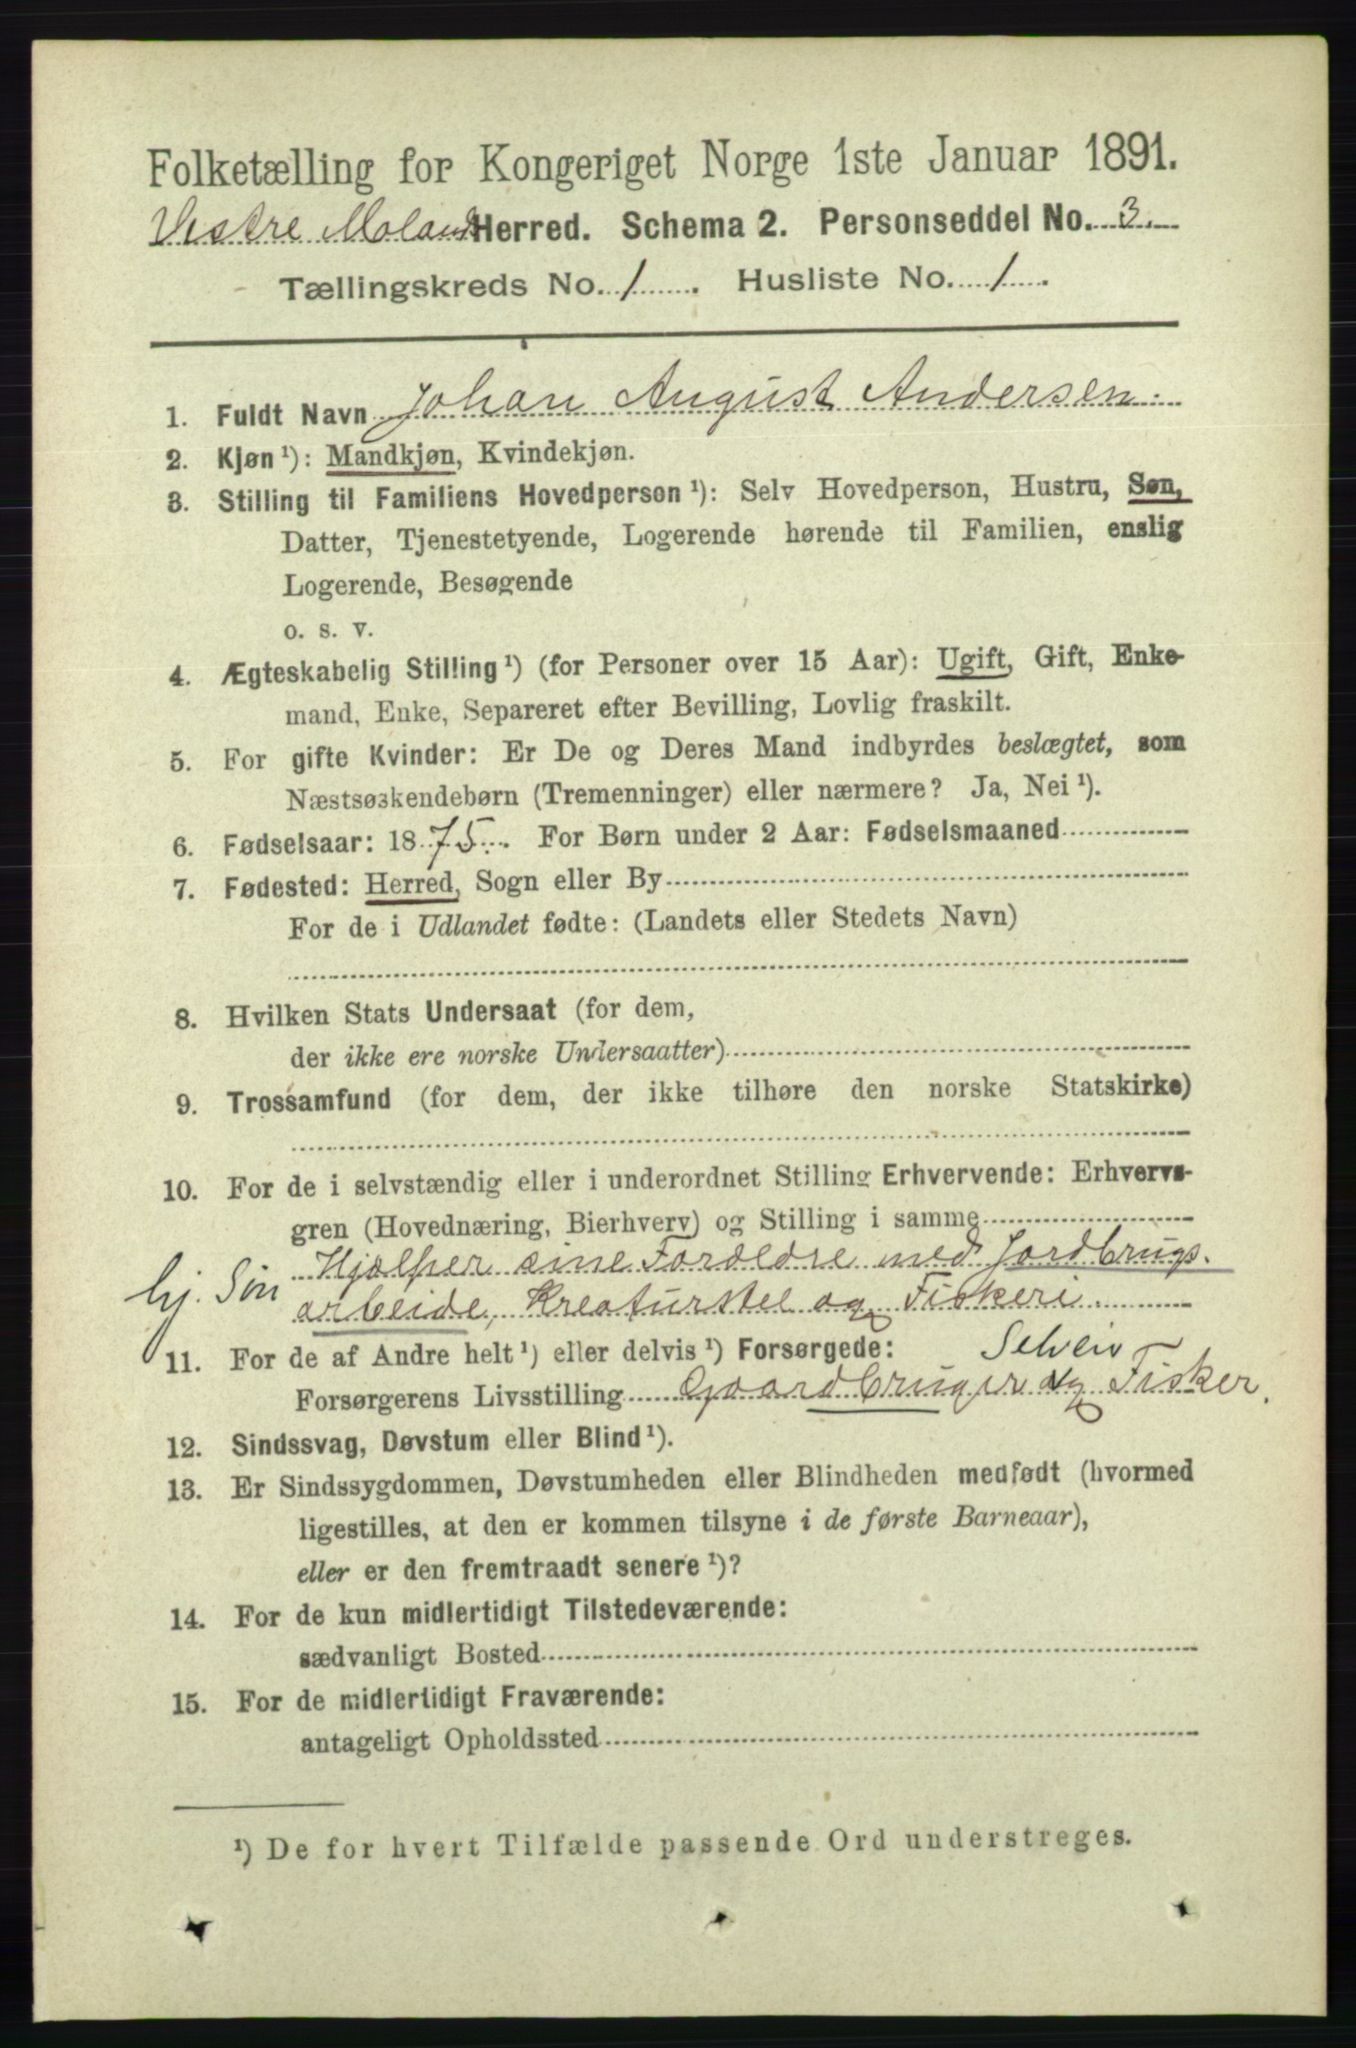 Folketælling for Kongeriget Norge 1ste Januar 1891.
Vestre Moland Herred. Schema 2. Personseddel No. 3.
Tællingskreds No. 1 . Husliste No. 1 .
1. Fuldt Navn Johan August Andersen.
2. Kjøn ¹): Mandkjøn, Kvindekjøn.
3. Stilling til Familiens Hovedperson ¹): Selv Hovedperson, Hustru, Søn,
Datter, Tjenestetyende, Logerende hørende til Familien, enslig
Logerende, Besøgende
o. s. v.
4. Ægteskabelig Stilling ¹) (for Personer over 15 Aar): Ugift, Gift, Enke-
mand, Enke, Separeret efter Bevilling, Lovlig fraskilt.
5. For gifte Kvinder: Er De og Deres Mand indbyrdes beslægtet, som
Næstsøskendebørn (Tremenninger) eller nærmere? Ja, Nei ¹).
6. Fødselsaar: 1875. For Børn under 2 Aar: Fødselsmaaned
7. Fødested: Herred, Sogn eller By
For de i Udlandet fødte: (Landets eller Stedets Navn)
8. Hvilken Stats Undersaat (for dem,
der ikke ere norske Undersaatter)
9. Trossamfund (for dem, der ikke tilhøre den norske Statskirke)
10. For de i selvstændig eller i underordnet Stilling Erhvervende: Erhvervs-
gren (Hovednæring, Bierhverv) og Stilling i samme
Hjælper sine Forældre med Jordbrugs.
hj. Søn arbeide, Kreaturstel og Fiskeri.
11. For de af Andre helt ¹) eller delvis ¹) Forsørgede: Selveir
Forsørgerens Livsstilling Gaardbruger og Fisker.
12. Sindssvag, Døvstum eller Blind ¹).
13. Er Sindssygdommen, Døvstumheden eller Blindheden medfødt (hvormed
ligestilles, at den er kommen tilsyne i de første Barneaar),
eller er den fremtraadt senere ¹)?
14. For de kun midlertidigt Tilstedeværende:
sædvanligt Bosted
15. For de midlertidigt Fraværende:
antageligt Opholdssted
¹) De for hvert Tilfælde passende Ord understreges.